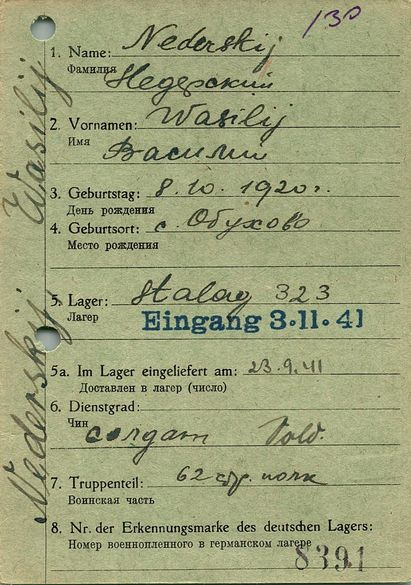 130
1. Name: Nederskij
Фамилия Недерский
2. Vornamen: Wasilij
Имя
Василий
3. Geburtstag: 8. 10. 1920 г.
День рождения
4. Geburtsort: с. Обухово
Место рождения
5. Lager: Stalag 323
Лагер
Eingang 3.11.41
5a. Im Lager eingeliefert am: 23.9.41
Доставлен в лагер (число)
6. Dienstgrad:
Чин
солдат Sold.
7. Truppenteil: 62 стр. полк
Воинская часть
8. Nr. der Erkennungsmarke des deutschen Lagers:
Номер военнопленного в германском лагере
8391
Nederskij Wasilij